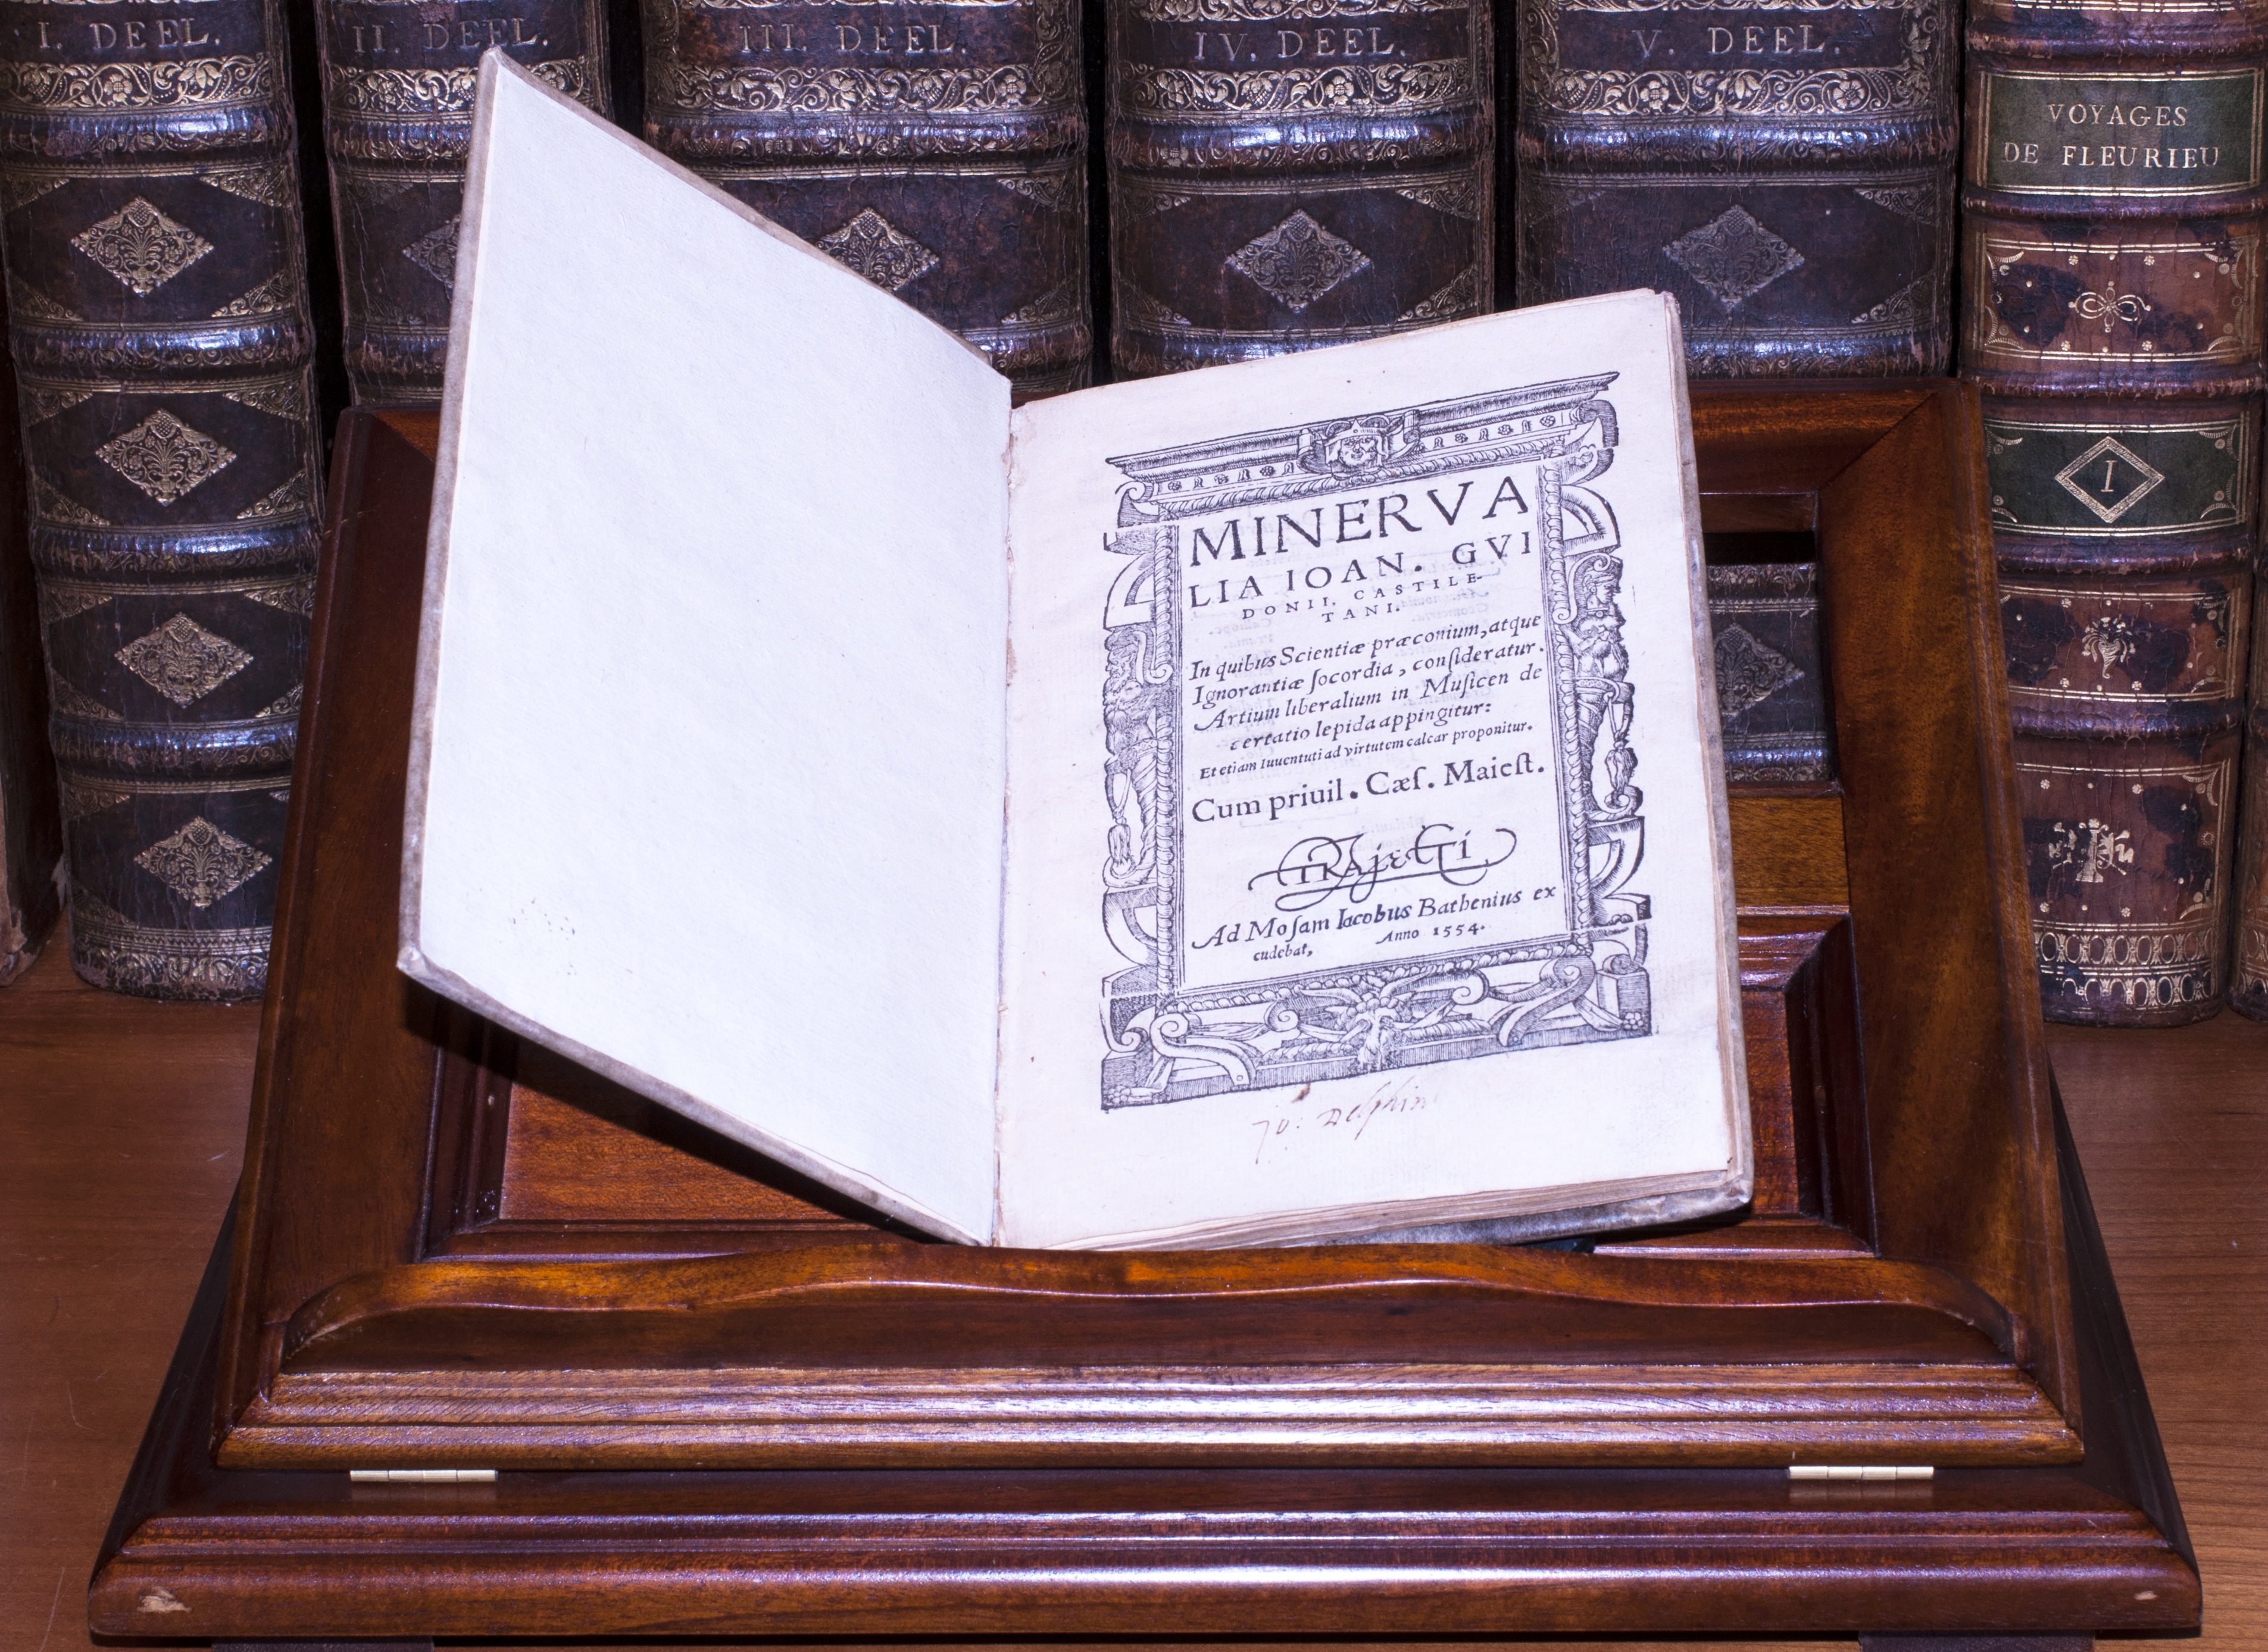 I. DEEL.
II. DEEL.
III. DEEL.
IV. DEEL.
V. DEEL.
VOYAGES
DE FLEURIEU
I
MINERVA
LIA IOAN. GVI
DONII, CASTILE-
TANI.
In quibus Scientiæ præconium, atque
Ignorantiæ ſocordia, conſideratur.
Artium liberalium in Muſicen de
certatio lepida appingitur:
Et etiam Iuuentuti ad virtutem calcar proponitur.
Cum priuil. Cæſ. Maieſt.
TRAjecTi,
Ad Moſam Iacobus Bathenius ex
cudebat, Anno 1554.
Jo: Delphin